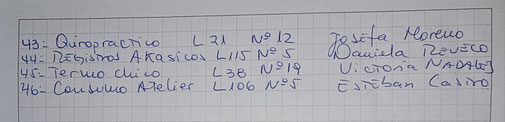 43- Quiropractico L 21 Nº 12 Josefa Moreno
44- Registros Akasicos L115 Nº 5 Daniela Reveco
45- Termo chico L38 Nº 19 Victoria Nadales
46- Consumo Atelier L106 Nº5 Esteban Castro